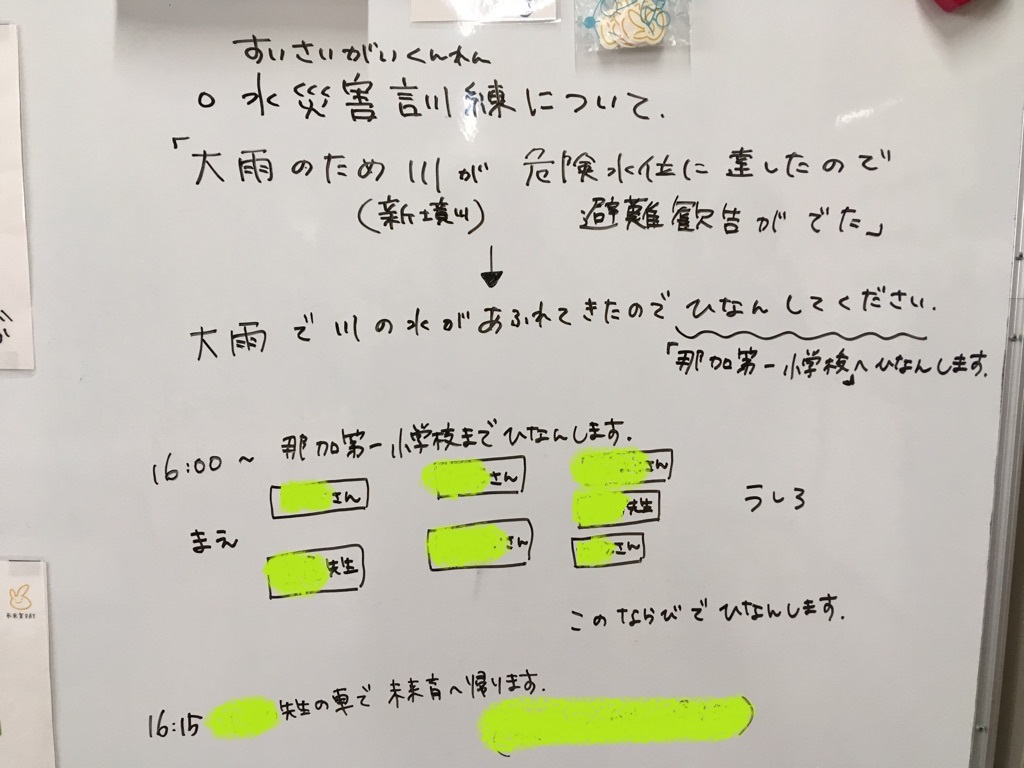 すいさいがいくんれん
○ 水災害訓練について.
「大雨のため川が 危険水位に達したので
(新境川) 避難歓告がでた」
↓
大雨で川の水があふれてきたので ひなんしてください.
「那加第一小学校」へひなんします.
16:00～ 那加第一小学校までひなんします.
さん さん さん
先生
まえ うしろ
先生 さん さん
このならびでひなんします.
16:15 先生の車で 未来育へ帰ります.